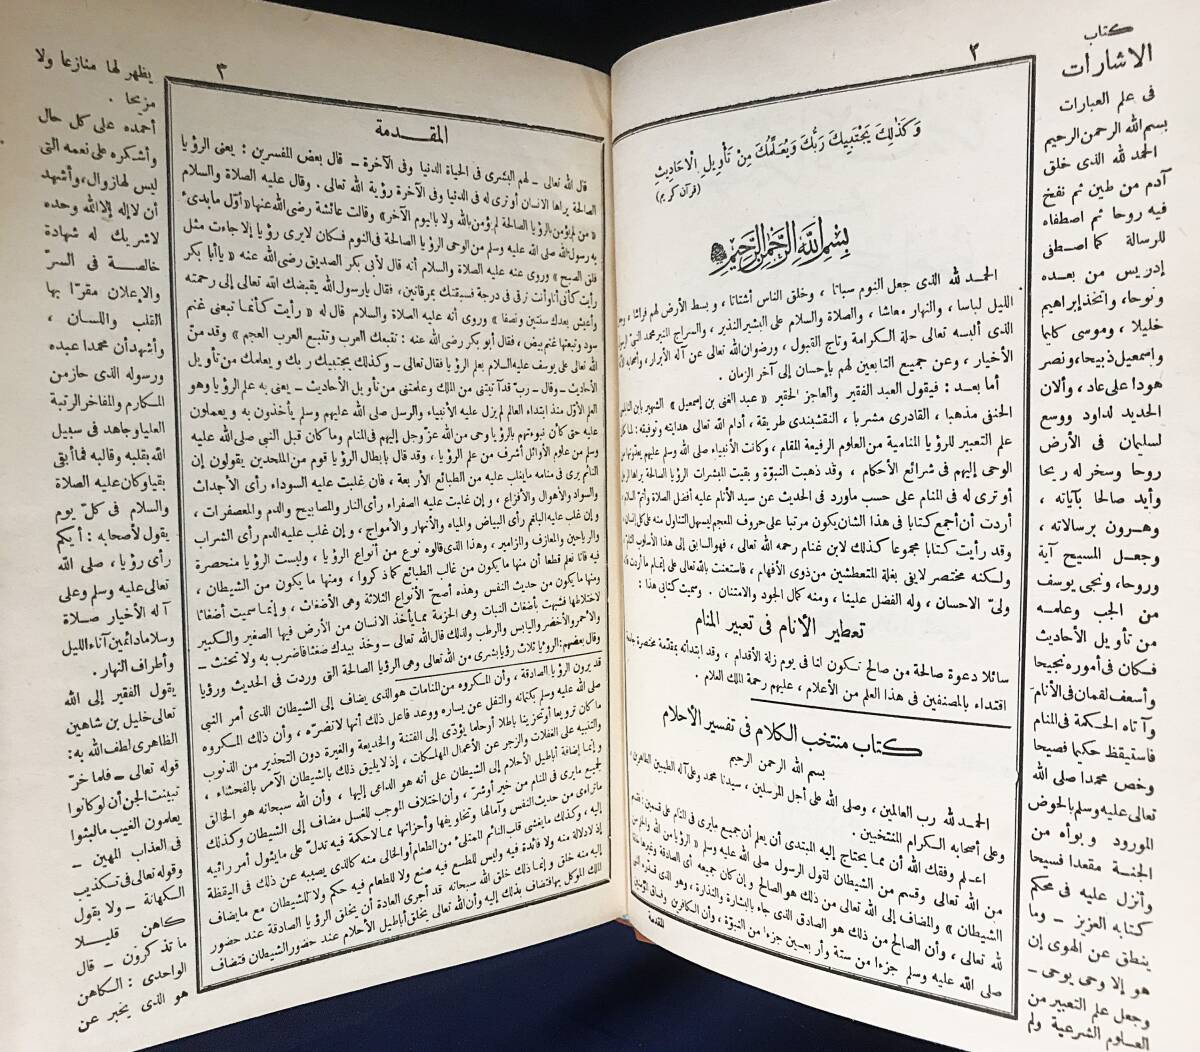 ٢
وَكَذٰلِكَ يَجْتَبِيكَ رَبُّكَ وَيُعَلِّمُكَ مِنْ تَأْوِيلِ الْأَحَادِيثِ
(قرآن كريم)
بِسْمِ اللهِ الرَّحْمٰنِ الرَّحِيمِ
الحمد لله الذى جعل النوم سباتا ، وخلق الناس أشتاتا ، و بسط الأرض لهم فراشا ،
الليل لباسا ، والنهار معاشا ، والصلاة والسلام على البشير النذير ، والسراج المنير محمد النبي
الذى ألبسه تعالى حلة الكرامة وتاج القبول ، ورضوان الله تعالى عن آله الأبرار ، وأصحابه
الأخيار ، وعن جميع التابعين لهم بإحسان إلى آخر الزمان .
أما بعد : فيقول العبد الفقير والعاجز الحقير « عبد الغنى بن إسمعيل » الشهير بابن
الحنفى مذهبا ، القادرى مشربا ، النقشبندى طريقة ، أدام الله تعالى هدايته وتوفيقه :
علم التعبير للرؤيا المنامية من العلوم الرفيعة المقام ، وكانت الأنبياء صلى الله عليهم
الوحى إليهم فى شرائع الأحكام ، وقد ذهبت النبوّة و بقيت المبشرات الرؤيا الصالحة يراها
أو ترى له فى المنام على حسب ماورد فى الحديث عن سيد الأنام عليه أفضل الصلاة وأتم
أردت أن أجمع كتابا فى هذا الشان يكون مرتبا على حروف المعجم ليسهل التناول منه على كل
وقد رأيت كتابا مجموعا كذلك لابن غنام رحمه الله تعالى ، فهو السابق إلى هذا الأسلوب
ولكنه مختصر لايفى بغلة المتعطشين من ذوى الأفهام ، فاستعنت بالله تعالى على إتمام ما أردت
ولىّ الاحسان ، وله الفضل علينا ، ومنه كمال الجود والامتنان . وسميت كتابى هذا :
تعطير الأنام فى تعبير المنام
سائلا دعوة صالحة من صالح تكون لنا فى يوم زلة الأقدام ، وقد ابتدأته بمقدّمة مختصرة
اقتداء بالمصنفين فى هذا العلم من الأعلام ، عليهم رحمة الملك العلام .
كتاب منتخب الكلام فى تفسير الأحلام
بسم الله الرحمن الرحيم
الحمد لله رب العالمين ، وصلى الله على أجل المرسلين ، سيدنا محمد وعلى آله الطيبين الطاهرين
وعلى أصحابه الكرام المنتخبين .
اعلم وفقك الله أن مما يحتاج إليه المبتدى أن يعلم أن جميع مايرى فى المنام على قسمين : فقسم
من الله تعالى وقسم من الشيطان لقول الرسول صلى الله عليه وسلم « الرؤيا من الله والحلم من
الشيطان » والمضاف إلى الله تعالى من ذلك هو الصالح وإن كان جميعه أى الصادقة وغيرها
لله تعالى ، وأن الصالح من ذلك هو الصادق الذى جاء بالبشارة والنذارة ، وهو الذى
صلى الله عليه وسلم جزءا من ستة وأر بعين جزءا من النبوّة ، وأن الكافرين وفساق
للمقدمة
كتاب
الاشارات
فى علم العبارات
بسم الله الرحمن الرحيم
الحمد لله الذى خلق
آدم من طين ثم نفخ
فيه روحا ثم اصطفاه
للرسالة كما اصطفى
إدريس من بعده
ونوحا، واتخذ إبراهيم
خليلا ، وموسى كليما
وإسمعيل ذبيحا، ونصر
هودا على عاد ، وألان
الحديد لداود ووسع
لسليمان فى الأرض
روحا وسخر له ريحا
وأيد صالحا بآياته ،
وهرون برسالاته ،
وجعل المسيح آية
وروحا، ونجى يوسف
من الجب وعلمه
من تأويل الأحاديث
فكان فى أموره نجيحا
وأسعف لقمان فى الأنام
وآتاه الحكمة فى المنام
فاستيقظ حكيما فصيحا
وخص محمدا صلى الله
تعالى عليه وسلم بالحوض
المورود وبوأه من
الجنة مقعدا فسيحا
وأنزل عليه فى محكم
كتابه العزيز ــ وما
ينطق عن الهوى إن
هو إلا وحى يوحى ــ
وجعل علم التعبير من
العلوم الشرعية ولم
٣
المقدمة
قال الله تعالى ــ لهم البشرى فى الحياة الدنيا وفى الآخرة ــ قال بعض المفسرين : يعنى الرؤيا
الصالحة يراها الانسان أو ترى له فى الدنيا وفى الآخرة رؤية الله تعالى . وقال عليه الصلاة والسلام
« من لم يؤمن بالرؤيا الصالحة لم يؤمن بالله ولا باليوم الآخر» وقالت عائشة رضى الله عنها «أوّل مابدىء
به رسول الله صلى الله عليه وسلم من الوحى الرؤيا الصالحة فى النوم فكان لايرى رؤيا إلا جاءت مثل
فلق الصبح » وروى عنه عليه الصلاة والسلام أنه قال لأبى بكر الصديق رضى الله عنه « يا أبا بكر
رأيت كأنى أنا وأنت نرقى فى درجة فسبقتك بمرقاتين، فقال يارسول الله يقبضك الله تعالى إلى رحمته
وأعيش بعدك سنتين ونصفا » وروى أنه عليه الصلاة والسلام قال له « رأيت كأنما تبعنى غنم
سود وتبعتها غنم بيض ، فقال أبو بكر رضى الله عنه : تتبعك العرب وتتبع العرب العجم » وقد منّ
الله تعالى على يوسف عليه السلام بعلم الرؤيا فقال تعالى ــ وكذلك يجتبيك ربك ويعلمك من تأويل
الأحاديث ــ وقال ــ رب قد آتيتنى من الملك وعلمتنى من تأويل الأحاديث ــ يعنى به علم الرؤيا وهو
العلم الأوّل منذ ابتداء العالم لم يزل عليه الأنبياء والرسل صلى الله عليهم وسلم يأخذون به و يعملون
عليه حتى كأن نبوءتهم بالرؤيا وحى من الله عزّ وجل إليهم فى المنام وما كان قبل النبى صلى الله عليه
وسلم من علوم الأوائل أشرف من علم الرؤيا ، وقد قال بإبطال الرؤيا قوم من الملحدين يقولون إن
النائم يرى فى منامه مايغلب عليه من الطبائع الأر بعة ، فان غلبت عليه السوداء رأى الأجداث
والسواد والأهوال والأفزاع ، و إن غلبت عليه الصفراء رأى النار والمصابيح والدم والمعصفرات ،
و إن غلب عليه البلغم رأى البياض والمياه والأنهار والأمواج ، و إن غلب عليه الدم رأى الشراب
والرياحين والمعازف والمزامير ، وهذا الذى قالوه نوع من أنواع الرؤيا ، وليست الرؤيا منحصرة
فيه فانا نعلم قطعا أن منها ما يكون من غالب الطبائع كما ذكروا ، ومنها ما يكون من الشيطان ،
ومنها مايكون من حديث النفس وهذه أصحّ الأنواع الثلاثة وهى الأضغاث ، و إنما سميت أضغاثا
لاختلاطها فشبهت بأضغاث النبات وهى الحزمة مما يأخذ الانسان من الأرض فيها الصغير والكبير
والأحمر والأخضر واليابس والرطب ولذلك قال الله تعالى ــ وخذ بيدك ضغثا فاضرب به ولا تحنث ــ
وقال بعضهم : الرؤيا ثلاث رؤيا بشرى من الله تعالى وهى الرؤيا الصالحة التى وردت فى الحديث ورؤيا
قد يرون الرؤيا الصادقة ، وأن المكروه من المنامات هو الذى يضاف إلى الشيطان الذى أمر النبي
صلى الله عليه وسلم بكتمانه والتفل عن يساره ووعد فاعل ذلك أنها لاتضرّه ، وأن ذلك المكروه
ما كان ترويعا أو تحزينا باطلا أو حلما يؤدّى إلى الفتنة والخديعة والغيرة دون التحذير من الذنوب
والتنبيه على الغفلات والزجر عن الأعمال المهلكات ، إذ لا يليق ذلك بالشيطان الآمر بالفحشاء ،
و إنما إضافة أباطيل الأحلام إلى الشيطان على أنه هو الداعى إليها ، وأن الله سبحانه هو الخالق
لجميع مايرى فى المنام من خير أو شرّ ، وأن اختلاف الموجب للغسل مضاف إلى الشيطان وكذلك
ماتراءى من حديث النفس وآمالها وتخاويفها وأحزانها مما لاحكمة فيه تدلّ على مايئول أمر رائيه
إليه ، وكذلك مايغشى قلب النائم الممتلئ من الطعام أو الخالى منه كالذى يصيبه عن ذلك فى اليقظة
إذ لا دلالة منه ولا فائدة فيه وليس للطبع فيه صنع ولا للطعام فيه حكم ولا للشيطان مع مايضاف
إليه منه خلق و إنما ذلك خلق الله سبحانه قد أجرى العادة أن يخلق الرؤيا الصادقة عند حضور
الملك الموكل بها فتضاف بذلك إليه وأن الله تعالى يخلق أباطيل الأحلام عند حضور الشيطان فتضاف
يظهر لها منازعا ولا
مزيحا .
أحمده على كل حال
وأشكره على نعمه التى
ليس لها زوال، وأشهد
أن لا إله إلا الله وحده
لاشريك له شهادة
خالصة فى السرّ
والإعلان مقرّا بها
القلب واللسان ،
وأشهد أن محمدا عبده
ورسوله الذى حاز من
المكارم والمفاخر الرتبة
العليا وجاهد فى سبيل
الله بقلبه وقالبه فما أبقى
بقيا وكان عليه الصلاة
والسلام فى كلّ يوم
يقول لأصحابه : أيكم
رأى رؤيا ، صلى الله
تعالى عليه وسلم وعلى
آله الأخيار صلاة
وسلاما دائمين آناء الليل
وأطراف النهار .
يقول الفقير إلى الله
تعالى خليل بن شاهين
الظاهرى لطف الله به :
قوله تعالى ــ فلما خرّ
تبينت الجن أن لو كانوا
يعلمون الغيب مالبثوا
فى العذاب المهين ــ
وقوله تعالى فى تكذيب
الكهانة ــ ولا بقول
كاهن قليلا
ما تذكرون ــ قال
الواحدى : الكاهن
هو الذى يخبر عن